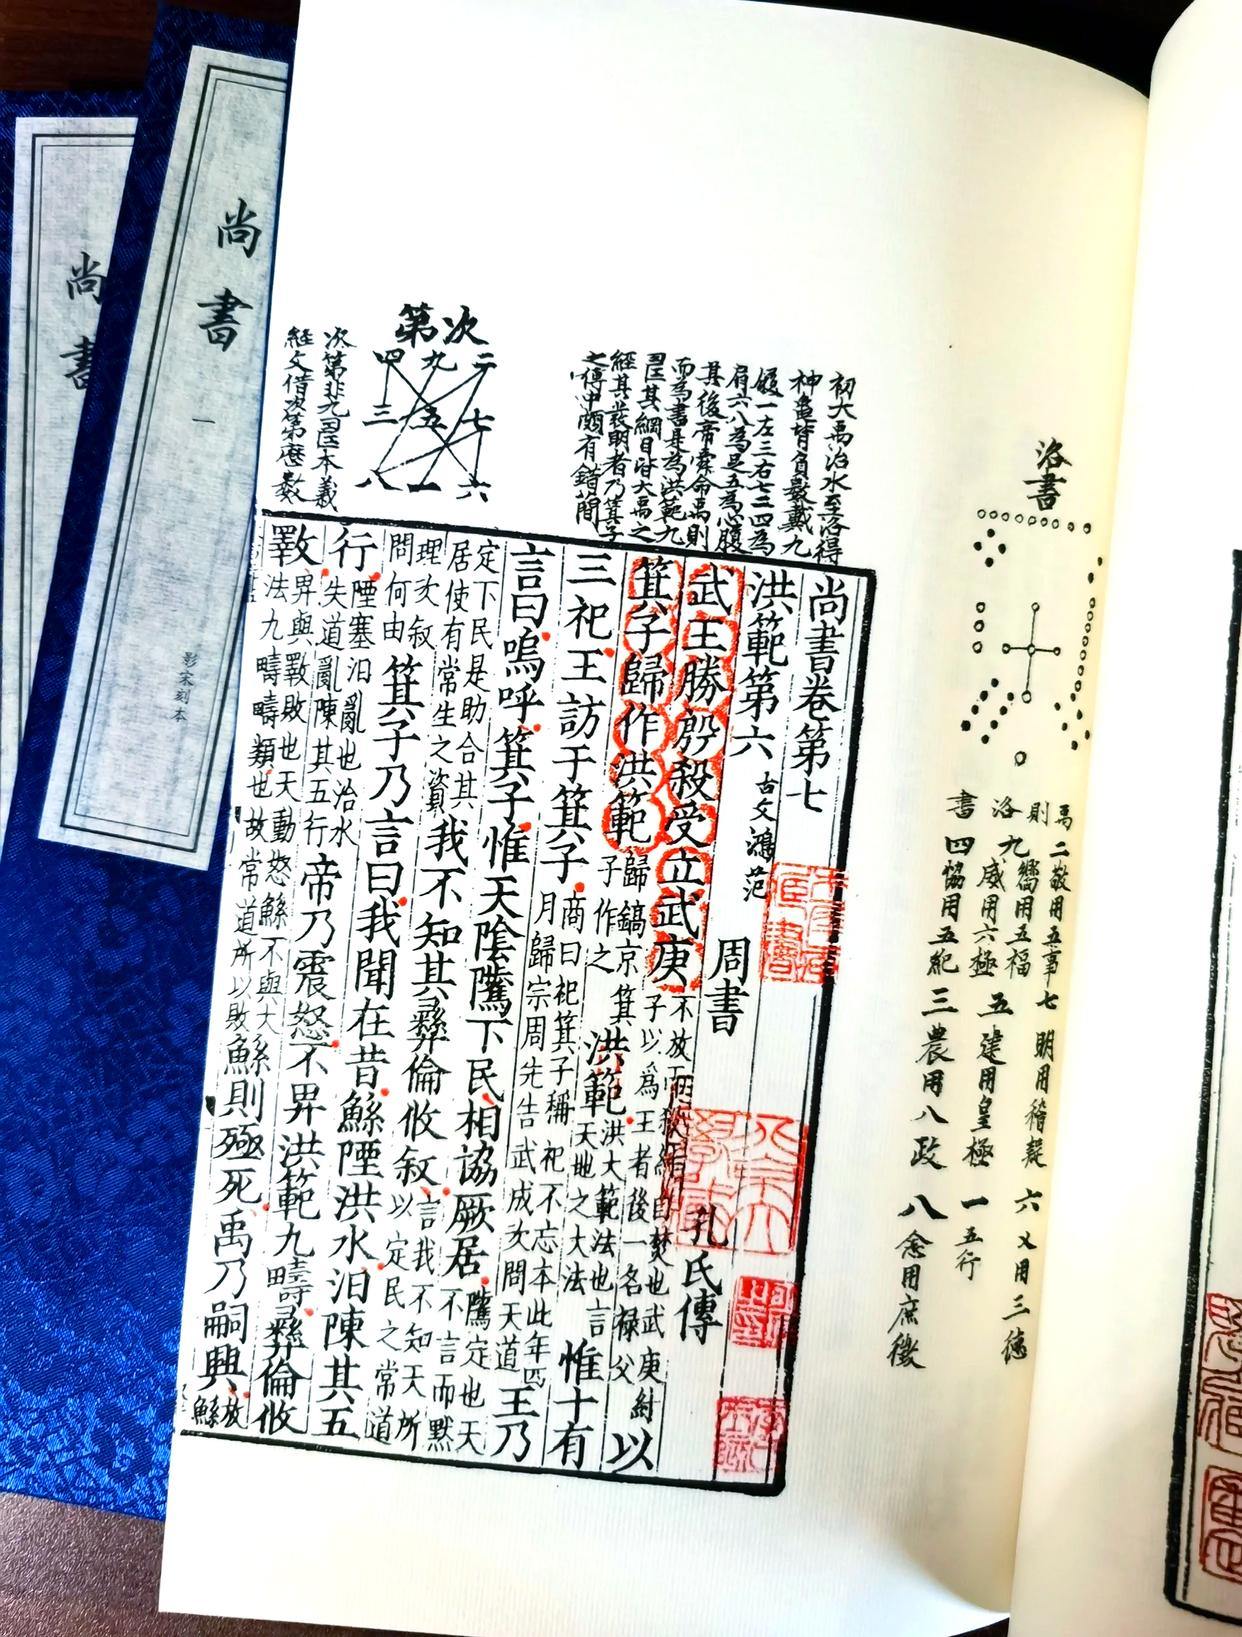 洛書
禹則洛書
二敬用五事
七明用稽疑
六乂用三德
九嚮用五福威用六極
五建用皇極
一五行
四協用五紀
三農用八政
八念用庶徵
初大禹治水至洛得
神龜背負數戴九
履一左三右七二四為
肩六八為足五為心腹
其後帝舜命禹則
而為書是為洪範九
其綱目皆大禹之
經其發明者乃箕子
之傳中頗有錯簡
次第
四 九 二
三 五 七
八 一 六
次第非九本義
經文借次第歷數
尚書卷第七
洪範第六 古文鴻范
周書
孔氏傳
武王勝殷殺受立武庚不放而殺紂自焚也武庚紂子以為王者後一名祿父以
箕子歸作洪範歸鎬京箕子作之洪範洪大範法也言天地之大法惟十有
三祀王訪于箕子商曰祀箕子稱祀不忘本此年四月歸宗周先告武成次問天道王乃
言曰嗚呼箕子惟天陰騭下民相協厥居騭定也天不言而默
定下民是助合其居使有常生之資我不知其彝倫攸敘言我不知天所以定民之常道
理次敘問何由箕子乃言曰我聞在昔鯀陻洪水汩陳其五
行陻塞汩亂也治水失道亂陳其五行帝乃震怒不畀洪範九疇彝倫攸
斁畀與斁敗也天動怒鯀不與大法九疇疇類也故常道所以敗鯀則殛死禹乃嗣興放鯀
尚書 一
影宋刻本
尚書